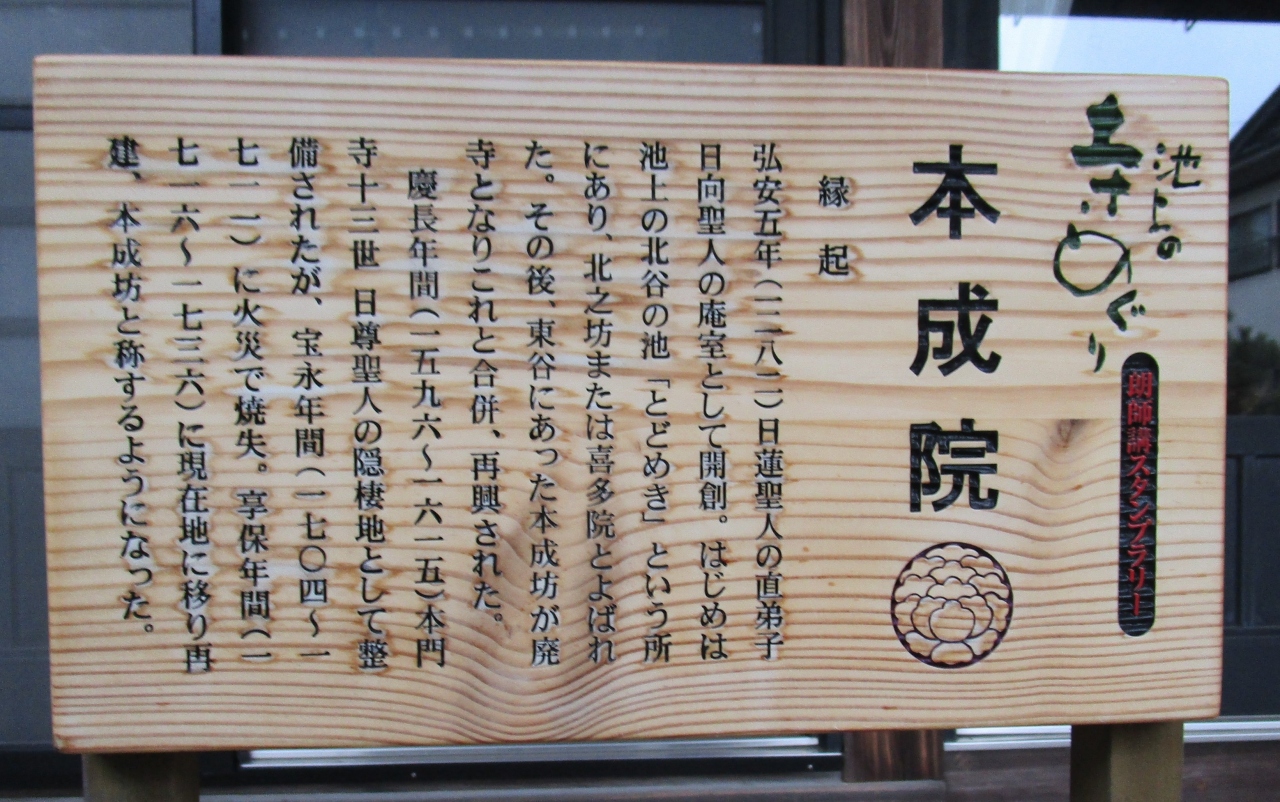 池上の
寺めぐり
朗師講スタンプラリー
本成院
縁起
弘安五年(一二八二)日蓮聖人の直弟子
日向聖人の庵室として開創。はじめは
池上の北谷の池「とどめき」という所
にあり、北之坊または喜多院とよばれ
た。その後、東谷にあった本成坊が廃
寺となりこれと合併、再興された。
慶長年間(一五九六〜一六一五)本門
寺十三世 日尊聖人の隠棲地として整
備されたが、宝永年間(一七〇四〜一
七一一)に火災で焼失。享保年間(一
七一六〜一七三六)に現在地に移り再
建、本成坊と称するようになった。